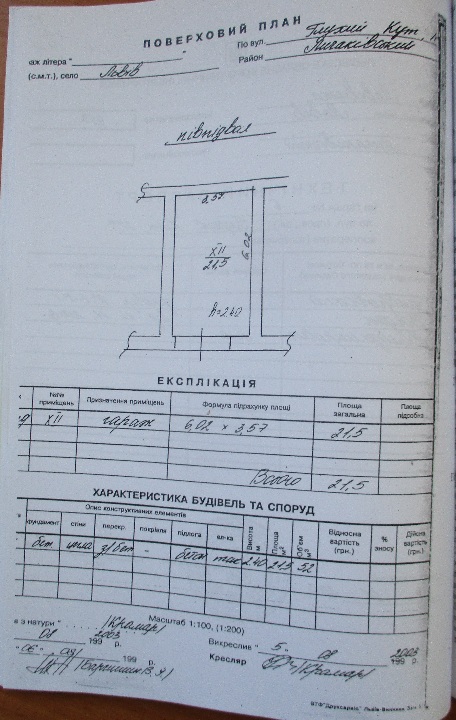 ПОВЕРХОВИЙ ПЛАН
аж літера " "
По вул. Глухий Кут,
(с.м.т.), село Львів
Район Личаківський
півпідвал
3,57
6,02
XII
21,5
h=2.40
ЕКСПЛІКАЦІЯ
№№ приміщень Призначення приміщень Формула підрахунку площі Площа загальна Площа підсобна
XII гараж 6,02 × 3,57 21,5
Всього 21,5
ХАРАКТЕРИСТИКА БУДІВЕЛЬ ТА СПОРУД
Опис конструктивних елементів
фундамент стіни перекр. покрівля підлога ел-ка Висота м Площа м² Об'єм м³ Відносна вартість (грн.) % зносу Дійсна вартість (грн.)
бет. цегла з/бет - бетон має 2.40 21.5 52
Масштаб 1:100, (1:200)
з натури " /Крамар/
08 2003 199 р.
Викреслив " 5 " 08 2003 199 р.
"06" 08 199 р.
Кресляр /Крамар/